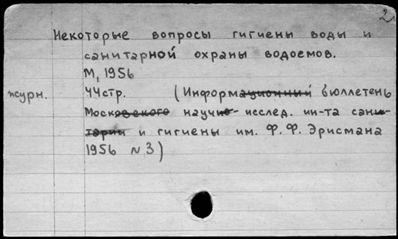 2
Некоторые вопросы гигиены воды и
санитарной охраны водоемов.
М, 1956
журн. 44стр. (Информационный бюллетень
Московского научно- исслед. ин-та сани-
тарии и гигиены им. Ф. Ф. Эрисмана
1956 №3)